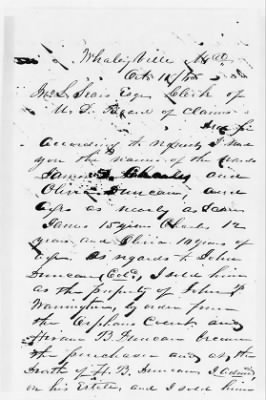 Whaleyville Md
Oct 11/65
Jos. S. Travis Esq Clerk of
U. S. Board of Claims
Dear Sir
According to the request I send
you the names of the
James, Charles and
Olivia Duncan, and
ages as nearly as I can
James 15 years Charles 12
years and Olivia 10 years of
age. As regards to John
Duncan (Cold), I sold him
as the property of John P
Warrington, by order from
the Orphans Court, and
B. Duncan became
the purchaser and as, the
Death of H. B. Duncan
on his Estate, and I sold him